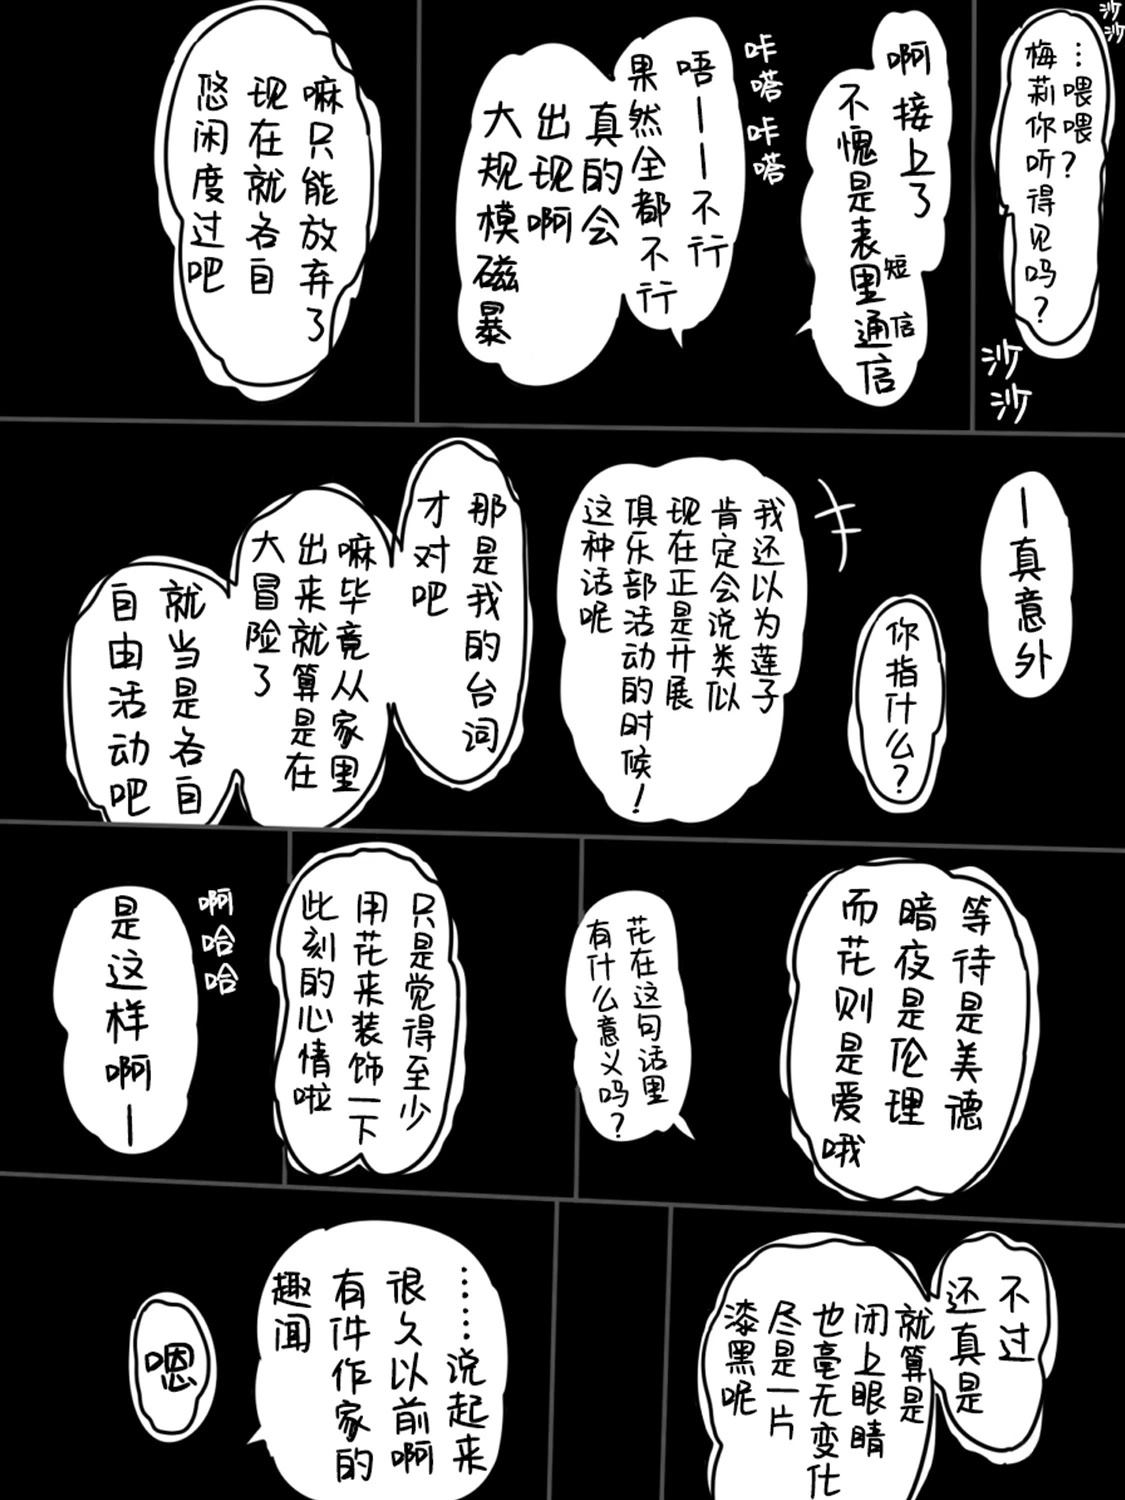 沙沙
…喂喂？
梅莉你听得见吗？
沙沙
啊接上了
不愧是表里通信
短信
咔嗒咔嗒
唔——不行
果然全都不行
真的会
出现啊
大规模磁暴
嘛只能放弃了
现在就各自
悠闲度过吧
—真意外
你指什么？
我还以为莲子
肯定会说类似
现在正是开展
俱乐部活动的时候！
这种话呢
那是我的台词
才对吧
嘛毕竟从家里
出来就算是在
大冒险了
就当是各自
自由活动吧
等待是美德
暗夜是伦理
而花则是爱哦
花在这句话里
有什么意义吗？
只是觉得至少
用花来装饰一下
此刻的心情啦
啊哈哈
是这样啊—
不过
还真是
就算是
闭上眼睛
也毫无变化
尽是一片
漆黑呢
……说起来
很久以前啊
有件作家的
趣闻
嗯